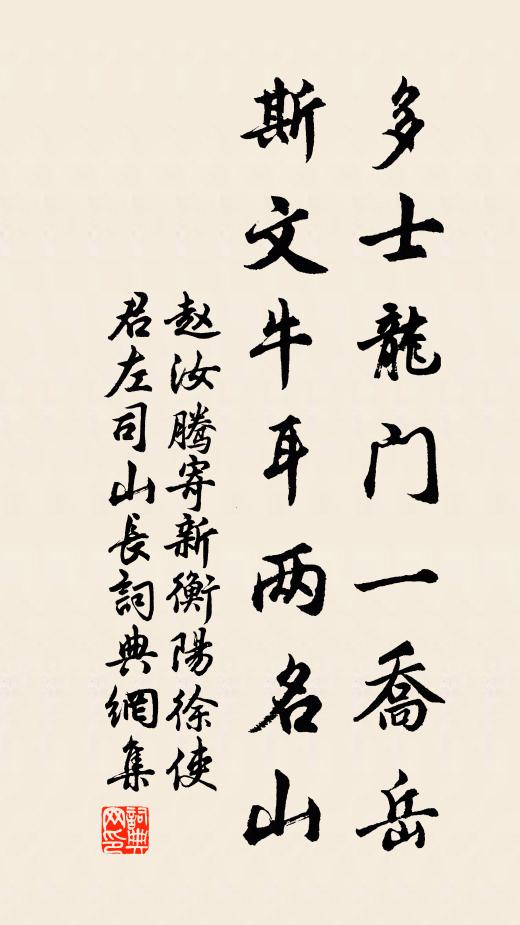 多士龍門一喬岳
斯文牛耳两名山
赵汝騰寄新衡陽徐使
君左司山長詞典網集
詞典网印